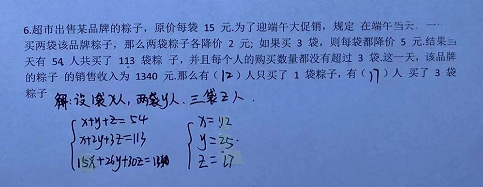 6.超市出售某品牌的粽子，原价每袋 15 元.为了迎端午大促销，规定 在端午当天，一
买两袋该品牌粽子，那么两袋粽子各降价 2 元; 如果买 3 袋，则每袋都降价 5 元.结果当
天有 54 人共买了 113 袋粽 子，并且每个人的购买数量都没有超过 3 袋.这一天，该品牌
的粽子 的销售收入为 1340 元.那么有 (12) 人只买了 1 袋粽子，有 (17) 人 买了 3 袋
粽子
解:设1袋x人，两袋y人. 三袋z人.
x+y+z=54
x+2y+3z=113
15x+26y+30z=1340
x=12
y=25
z=17